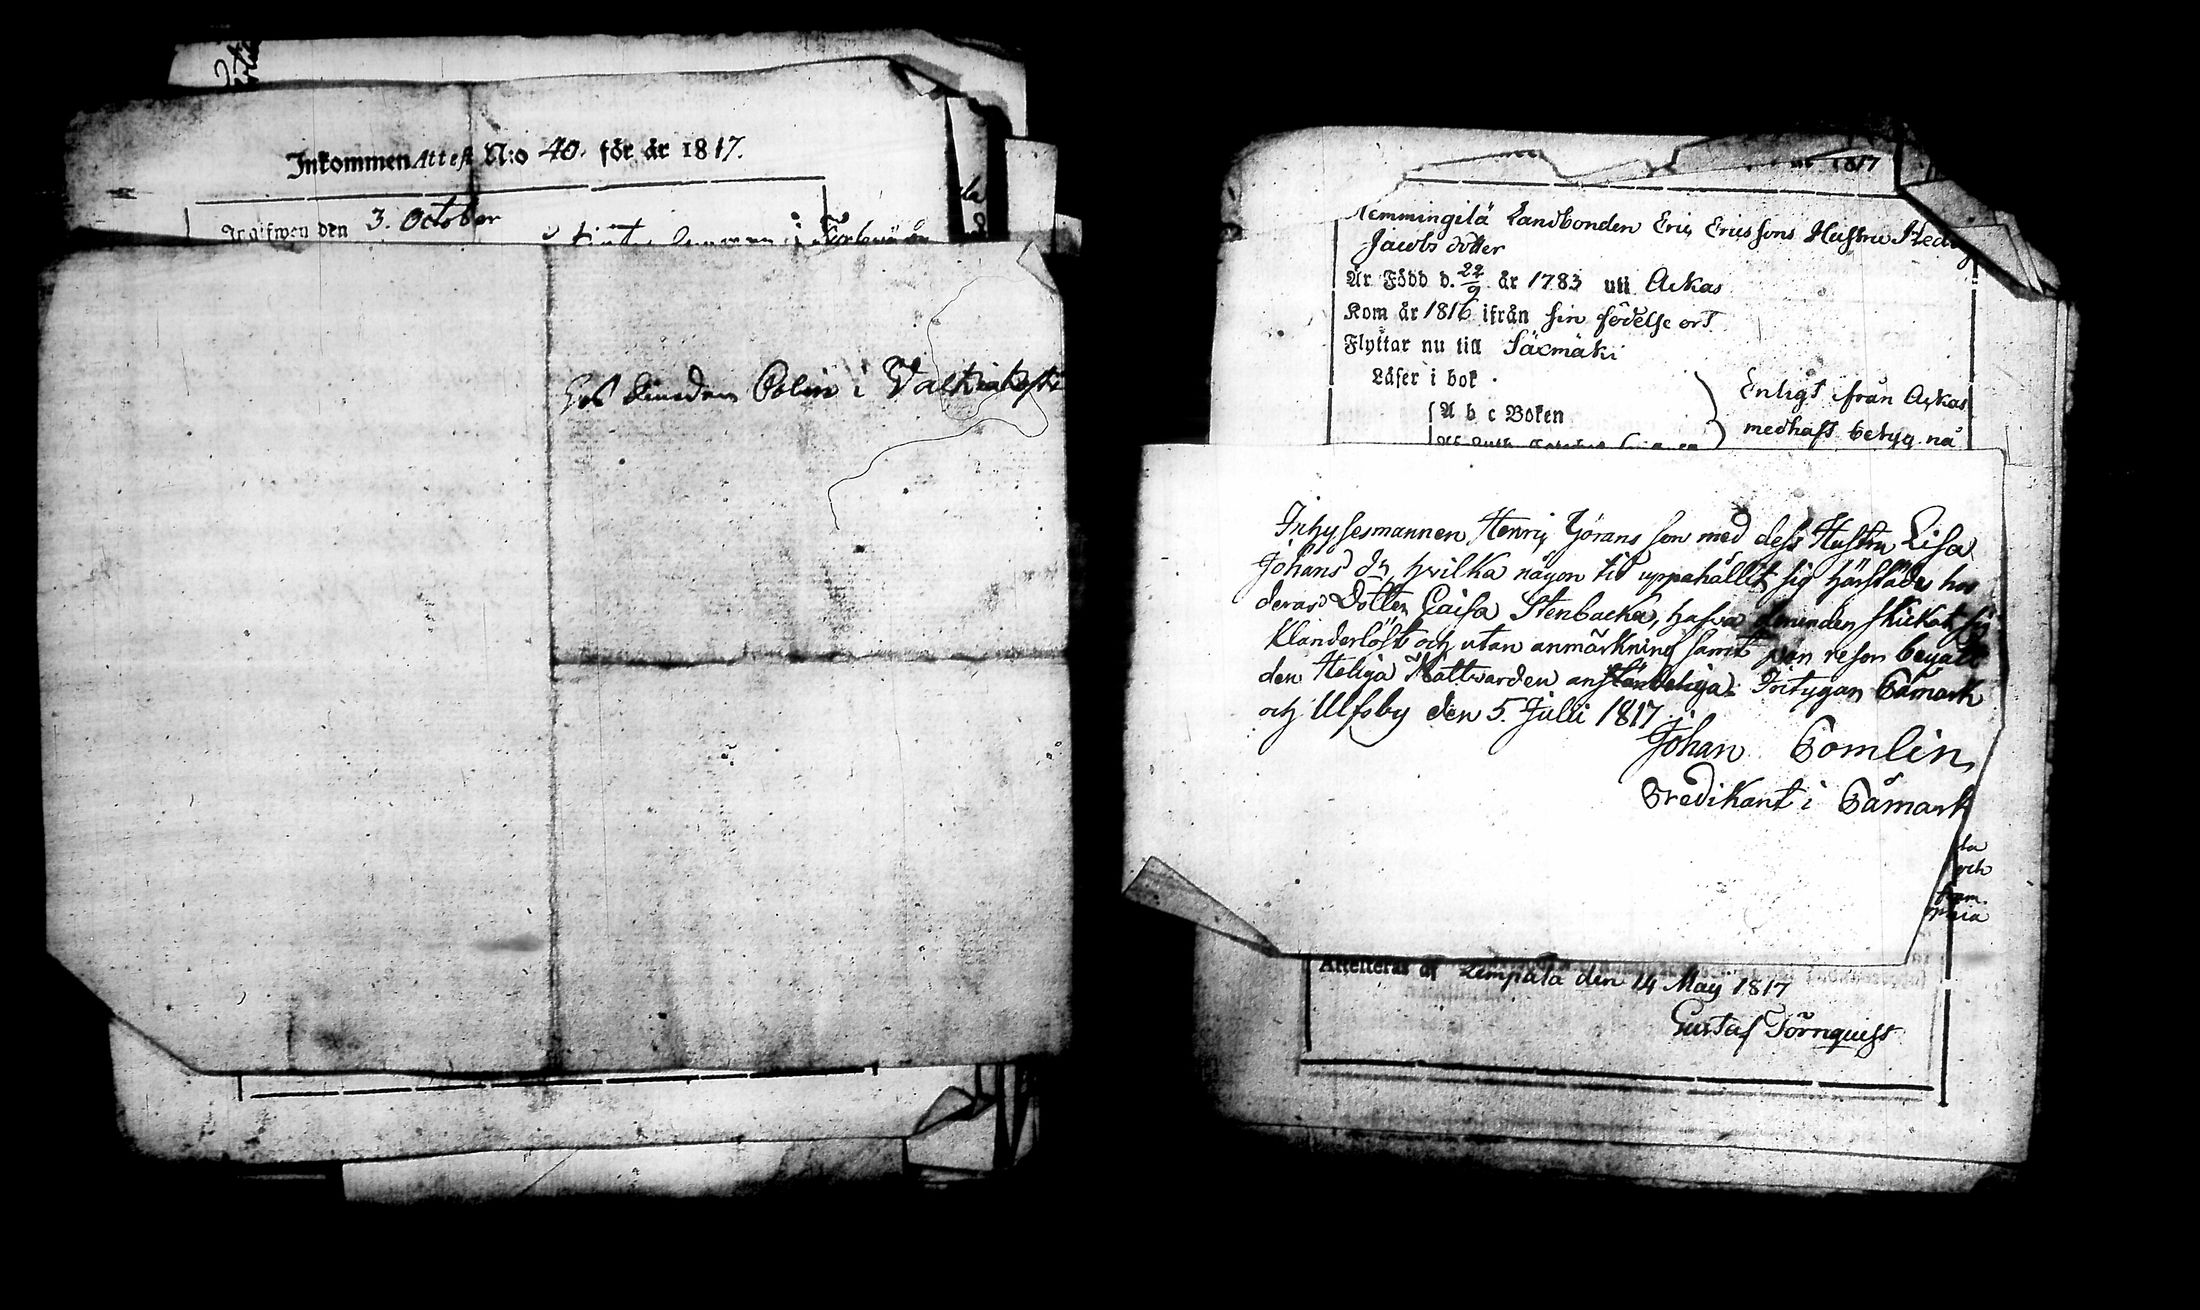 Inkommen Attest N:o 40. för år 1817.
Ar gifwen den 3. October
Hos bonden Colin i Valkiakoski
1817
Hemmingilä Landbonden Eric Ericssons Hustru
Jacobs dotter
Är Född d. 22/9 år 1783 uti Ackas
Kom år 1816 ifrån sin födelse ort
Flyttar nu till Säxmäki
Läser i bok.
A b c Boken
Enligt från Ackas
medhaft betyg nå
Inhysesmannen Henric Görans son med dess Hustru Lisa
Johans dr, hvilka någon tid uppehållit sig härstädes hos
deras Dotter Caisa Stenbacka, hafva skickat sig
Klanderlöst och utan anmärkning samt begått
den Heliga Nattvarden anständeligá. Intygar Påmark
och Ulfsby den 5. Julii 1817.
Johan Pomlin,
Predikant i Påmark
da
och
Attesteras af Lempälä den 14 May 1817
Gustaf Törnquist